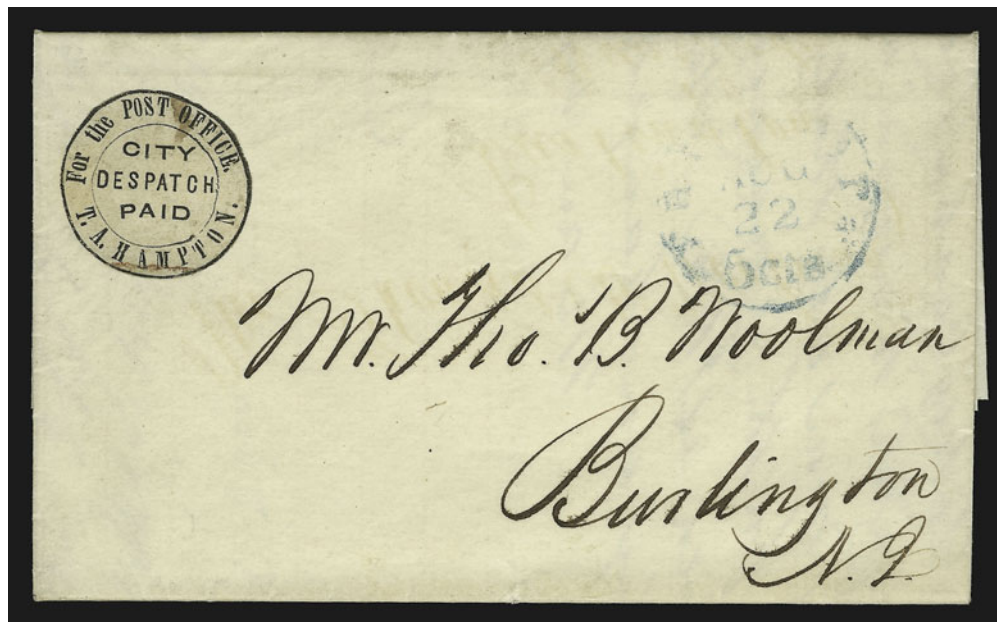 For the POST OFFICE.
CITY
DESPATCH
PAID
T. A. HAMPTON.
22
5cts
Mr. Tho. B. Woolman
Burlington
N. J.